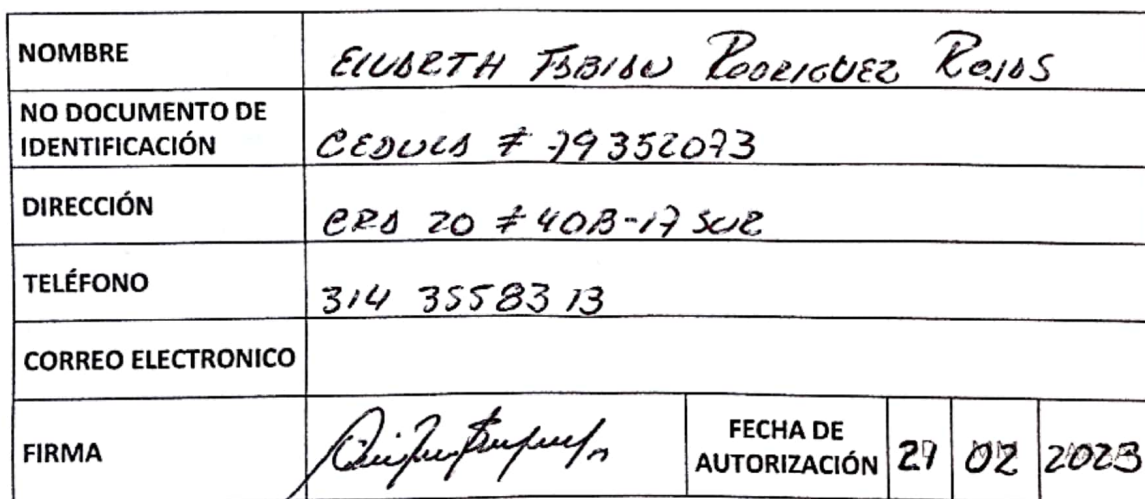 NOMBRE
RODRIGUEZ ROJAS
NO DOCUMENTO DE
IDENTIFICACIÓN
CEDULA # 79352073
DIRECCIÓN
CRA 20 # 40B-17 SUR
TELÉFONO
314 3558313
CORREO ELECTRONICO
FIRMA
FECHA DE
AUTORIZACIÓN
02 2023